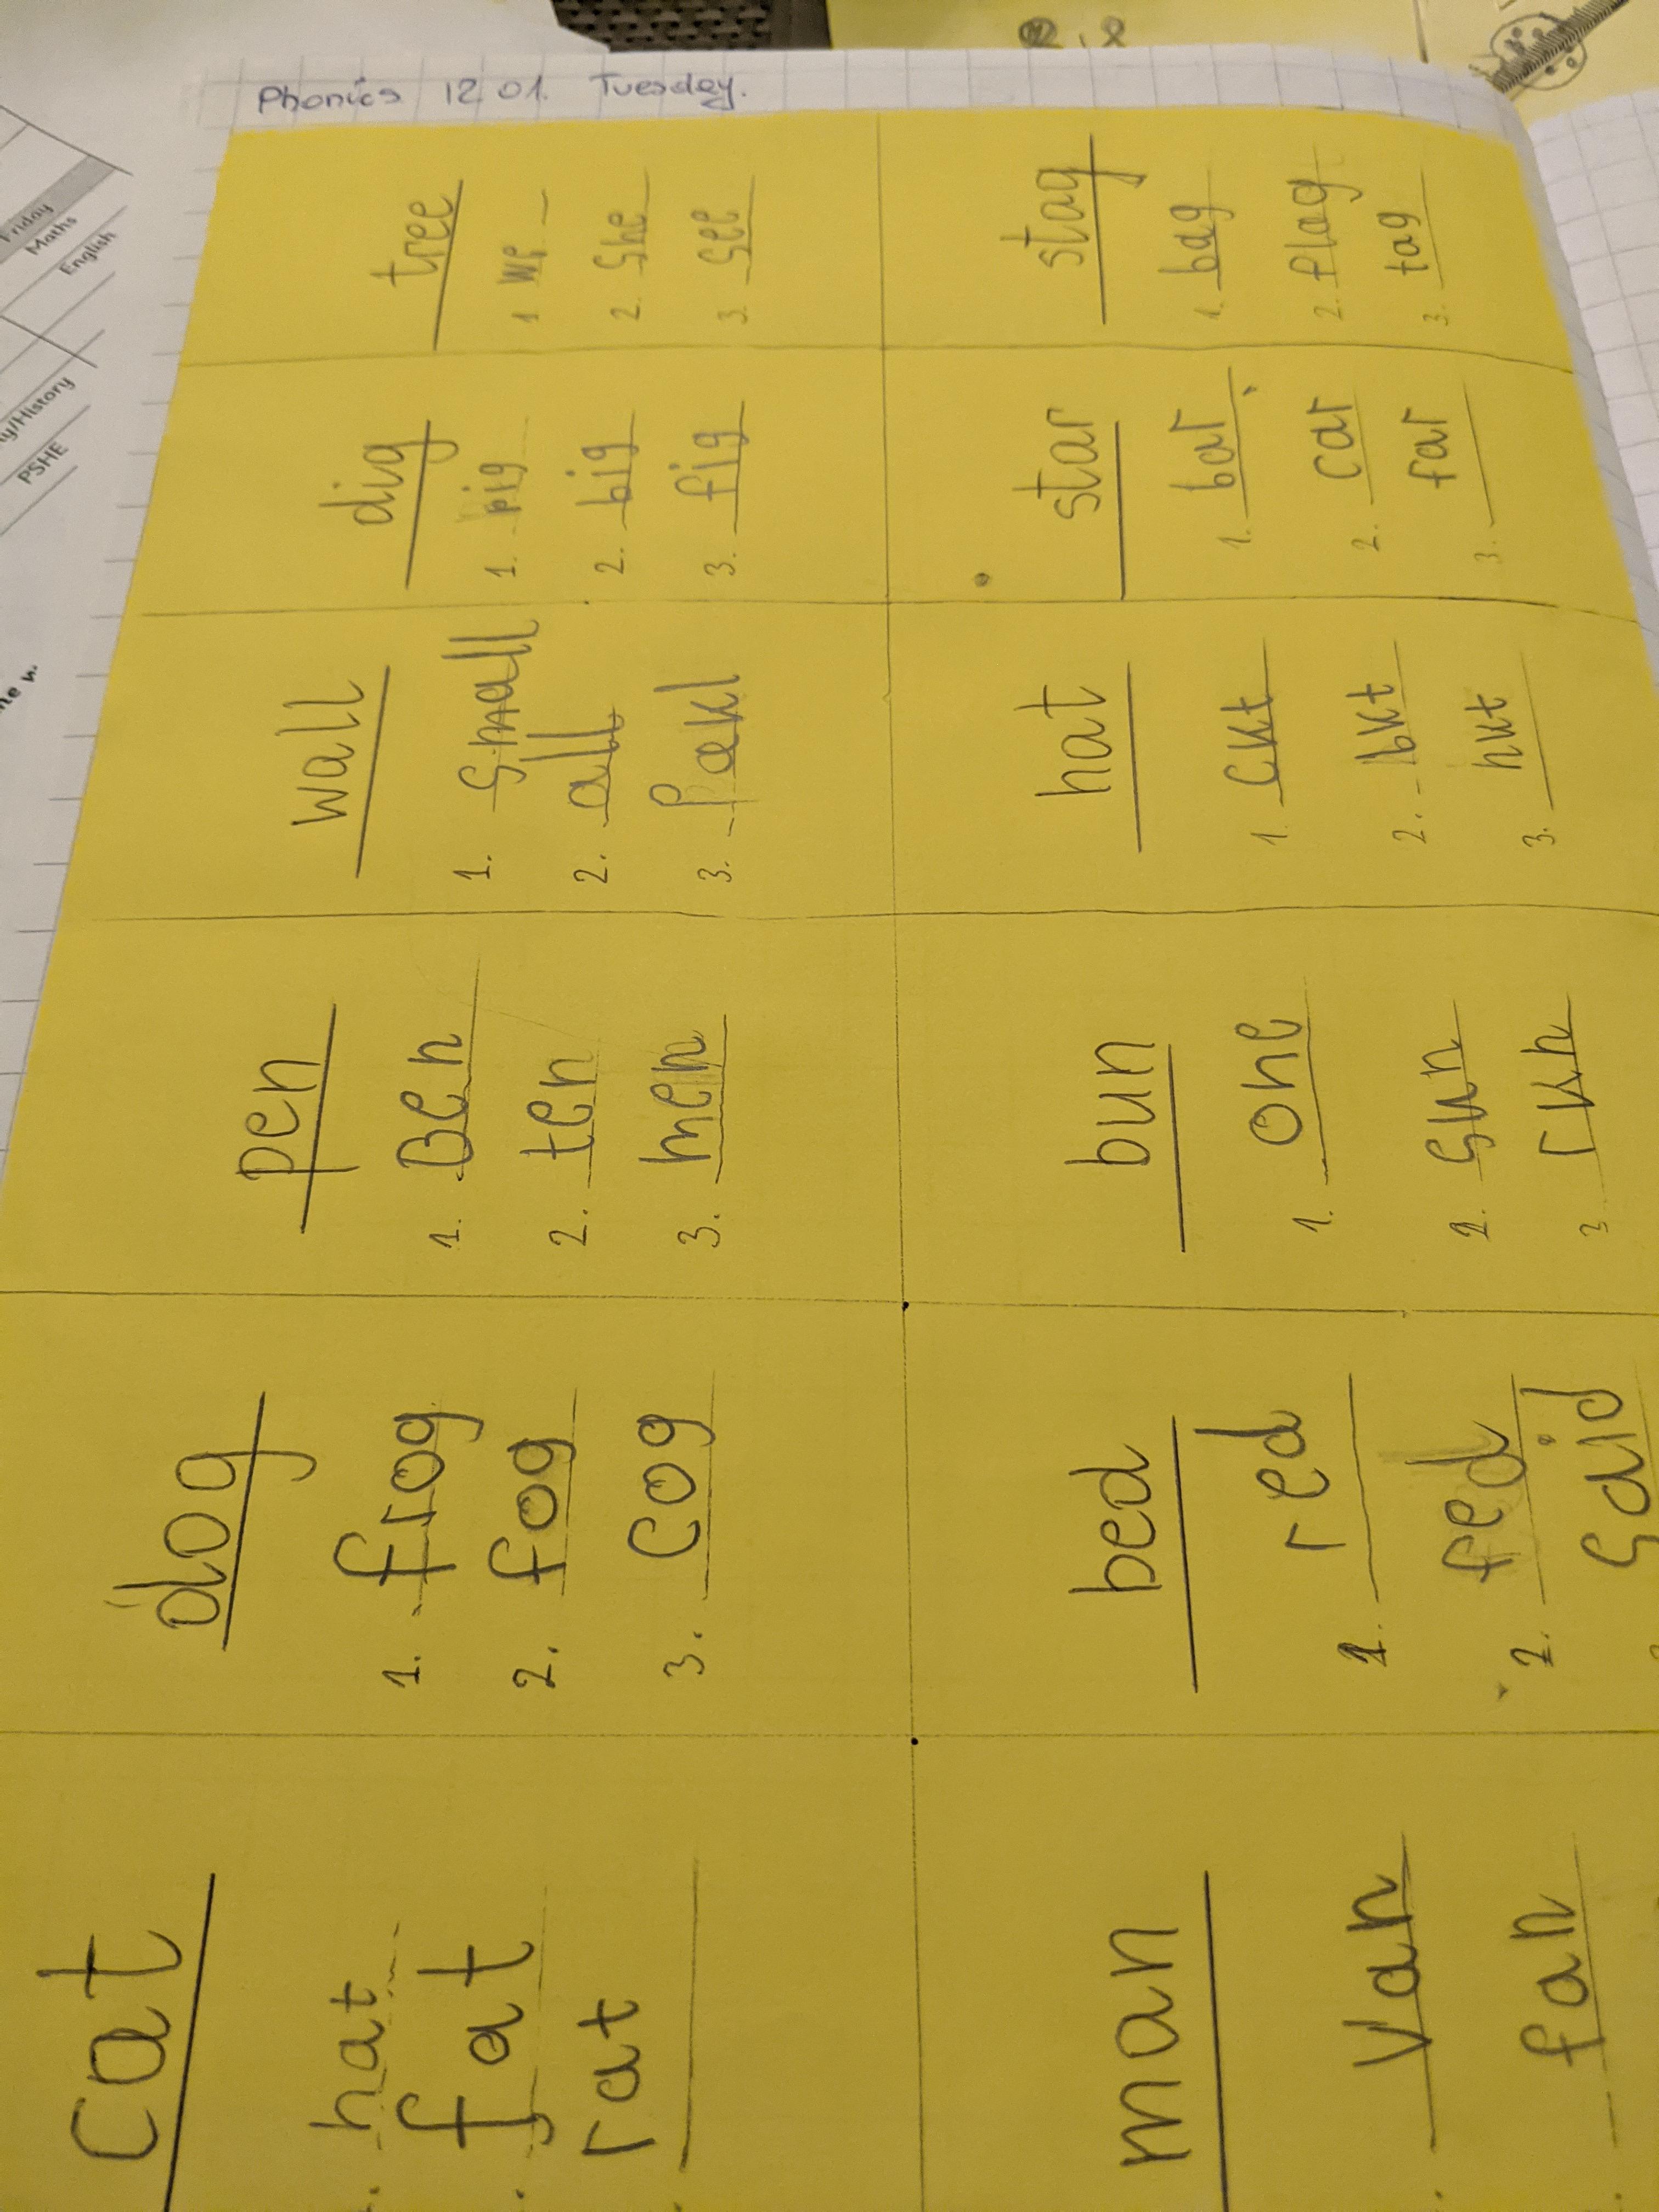 Phonics 12.01. Tuesday.
cat
hat
fat
rat
dog
1. frog
2. fog
3. cog
pen
1. Ben
2. ten
3. men
wall
1. small
2. all
3.
dig
1. pig
2. big
3. fig
tree
1
2. she
3. see
man
van
fan
bed
1. red
2. fed
said
bun
1. one
2. sun
3 run
hat
1. cut
2. but
3.
star
1. bar
2. car
3. far
stag
1. bag
2. flag
3. tag
Friday
Maths
English
y/History
PSHE